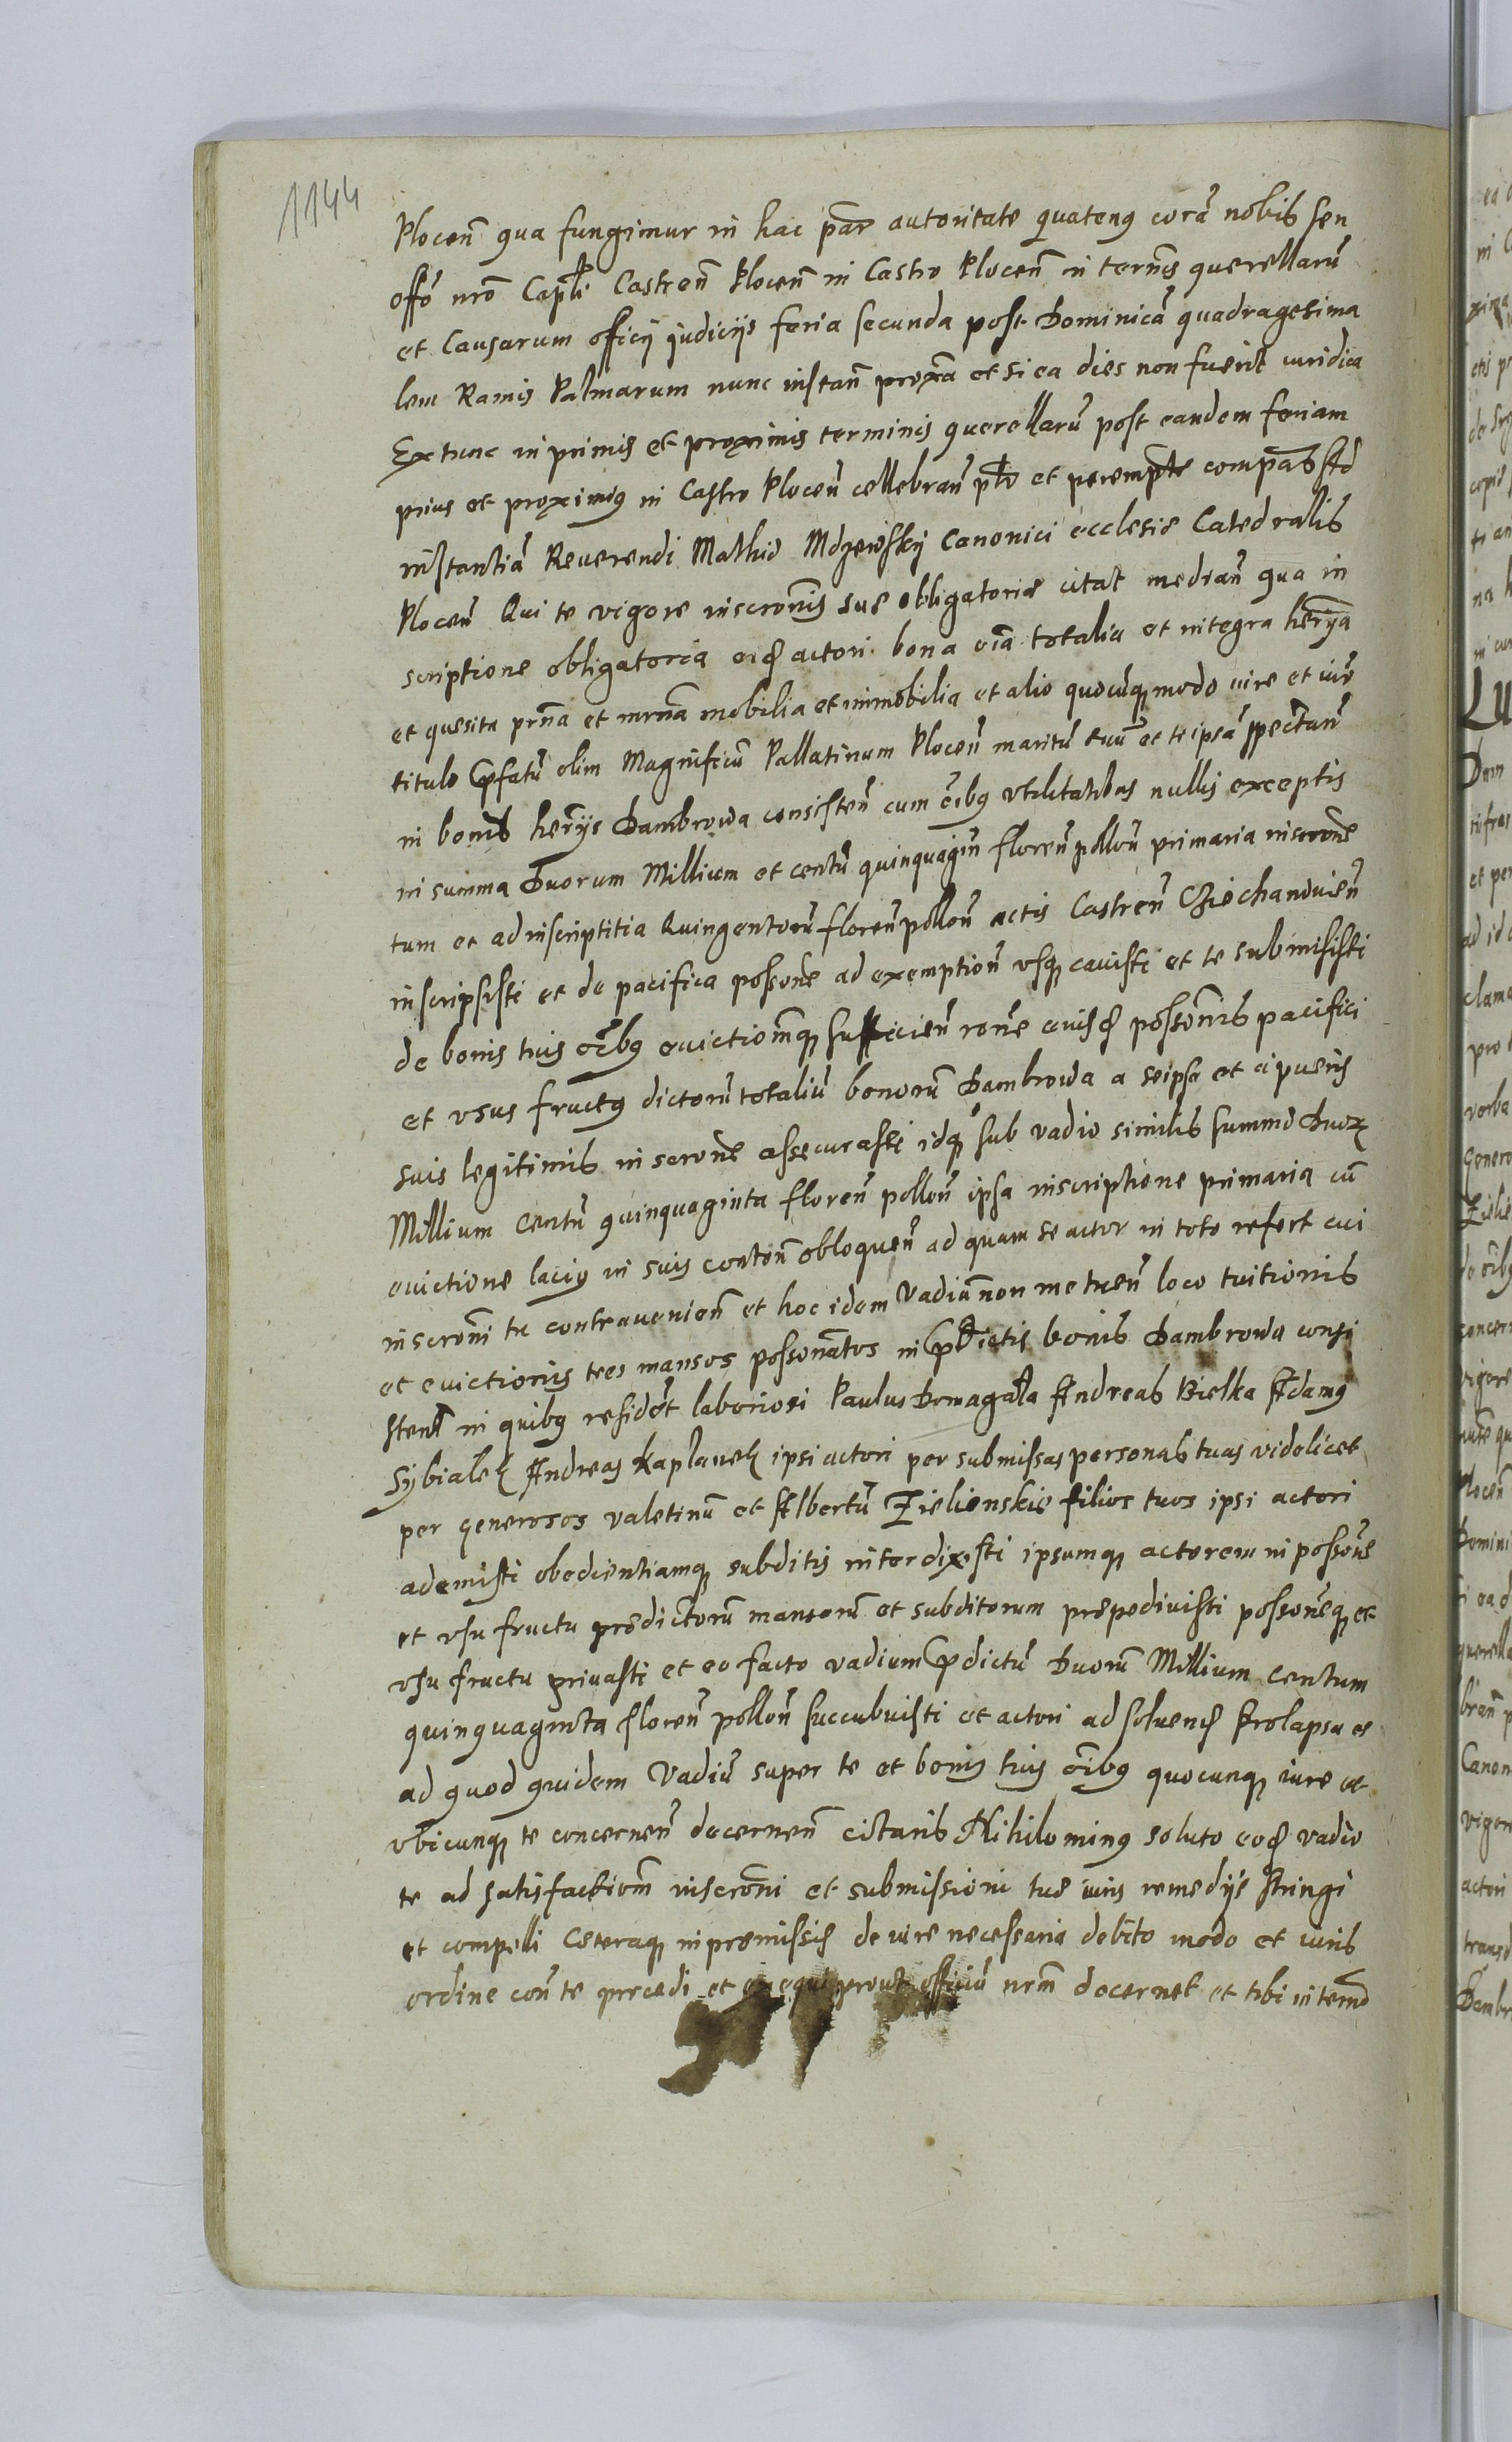 1144
Plocen̄ qua fungimur in hac par̄ autoritate quatenq corā nobis seu
offō nrō Caplī Castren̄ Plocen̄ in Castro Plocen̄ in ternīs querellarū
et Causarum officÿ judicÿs feria secunda post Dominicā quadragesima
lem Ramis Palmarum nunc instan̄ proxā et si ea dies non fuerit iuridica
Extunc in primis et proximis terminis querellarū post eandem feriam
prius et proximiq in Castro Plocen̄ cellebran̄ ptō et perempte compās Ad
instantiā Reverendi Mathie Mdzewsky Canonici ecclesie Catedralis
Plocen̄ Qui te vigore inscronīs sue obligatorie citat median̄ qua in
scriptione obligatoria eid actori bona oīa totalia et integra herÿa
et quesita prn̄a et mrn̄a mobilia et immobilia et alio quocūq modo iure et iurē
titulo pfatū olim Magnificū Pallatinum Plocen̄ maritū tuū et te ipsā spectan̄
in bonis herÿs Dambrowa consisten̄ cum oībq utilitatibus nullis exceptis
in summa Duorum Millium et centū quinquagin̄ floren̄ pollon̄ primaria inscrone
tum et adinscriptitia Quingentorū floren̄ pollon̄ actis Castren̄ Cziechanovien̄
inscripsisti et de pacifica possone ad exemption̄ usq cavisti et te submisisti
de bonis tuis oībq evictiomq sufficien̄ ronē eiusd possonis pacifici
et usus fructq dictorū totaliū bonorū Dambrowa a seipsa et a pueris
suis legitimis inscronē assecurasti idq sub vadio similis summe Duorz
Millium Centū quinquaginta floren̄ pollon̄ ipsa inscriptione primaria cū
evictione laciq in suis conten̄ obloquen̄ ad quam se actor in toto refert cui
inscronī tu contravenien̄ et hoc idem Vadiū non metuen̄ loco tuitionis
et evictionis tres mansos possonatos in pdictis bonis Dambrowa consi
sten̄ in quibq residēt laboriosi Paulus Domagala Andreas Bielka Adamq
Sybialek Andreas Kaplanek ipsi actori per submissas personas tuas videlicet
per Generosos valetinū et Albertū Zielienskie filios tuos ipsi actori
ademisti obedientiamq subditis interdixisti ipsumq actorem in possone
et usu fructu predictorū mansorū et subditorum prepedivisti possoneq et
usu fructu privasti et eo facto vadium pdictū Duorū Millium Centum
quinquaginta floren̄ pollon̄ succubuisti et actori ad solvend prolapsa es
ad quod quidem Vadiū super te et bonis tuis oībq quocunq iure et
ubicunq te concernen̄ decernen̄ citaris Nihilominq soluto eod vadio
te ad satisfaction̄ inscronī et submissioni tue iuris remedÿs stringi
et compelli Ceteraq in premissis de iure necessaria debito modo et iuris
ordine con̄ te procedi et exequi prout officiū nrm̄ decernet et tibi in term̄o